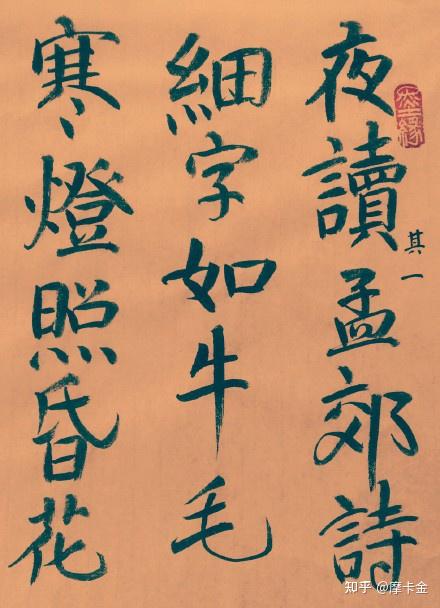 夜讀孟郊詩
其一
細字如牛毛
寒燈照昏花
知乎 @摩卡金